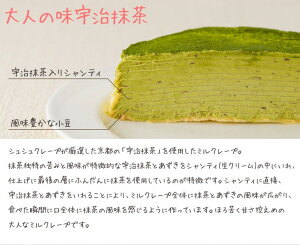 大人の味宇治抹茶
宇治抹茶入りシャンティ
風味豊かな小豆
シュシュクレープが厳選した京都の「宇治抹茶」を使用したミルクレープ。
抹茶独特の苦みと風味が特徴的な宇治抹茶とあずきをシャンティ(生クリーム)の中にいれ、
仕上げに最後の層にふんだんに抹茶を使用しているのが特徴です。シャンティに直接、
宇治抹茶とあずきをいれることにより、ミルクレープ全体に抹茶とあずきの風味が広がり、
食べた瞬間に口全体に抹茶の風味を感じるように作っています。ほろ苦く甘さ控えめの
大人なミルクレープです。